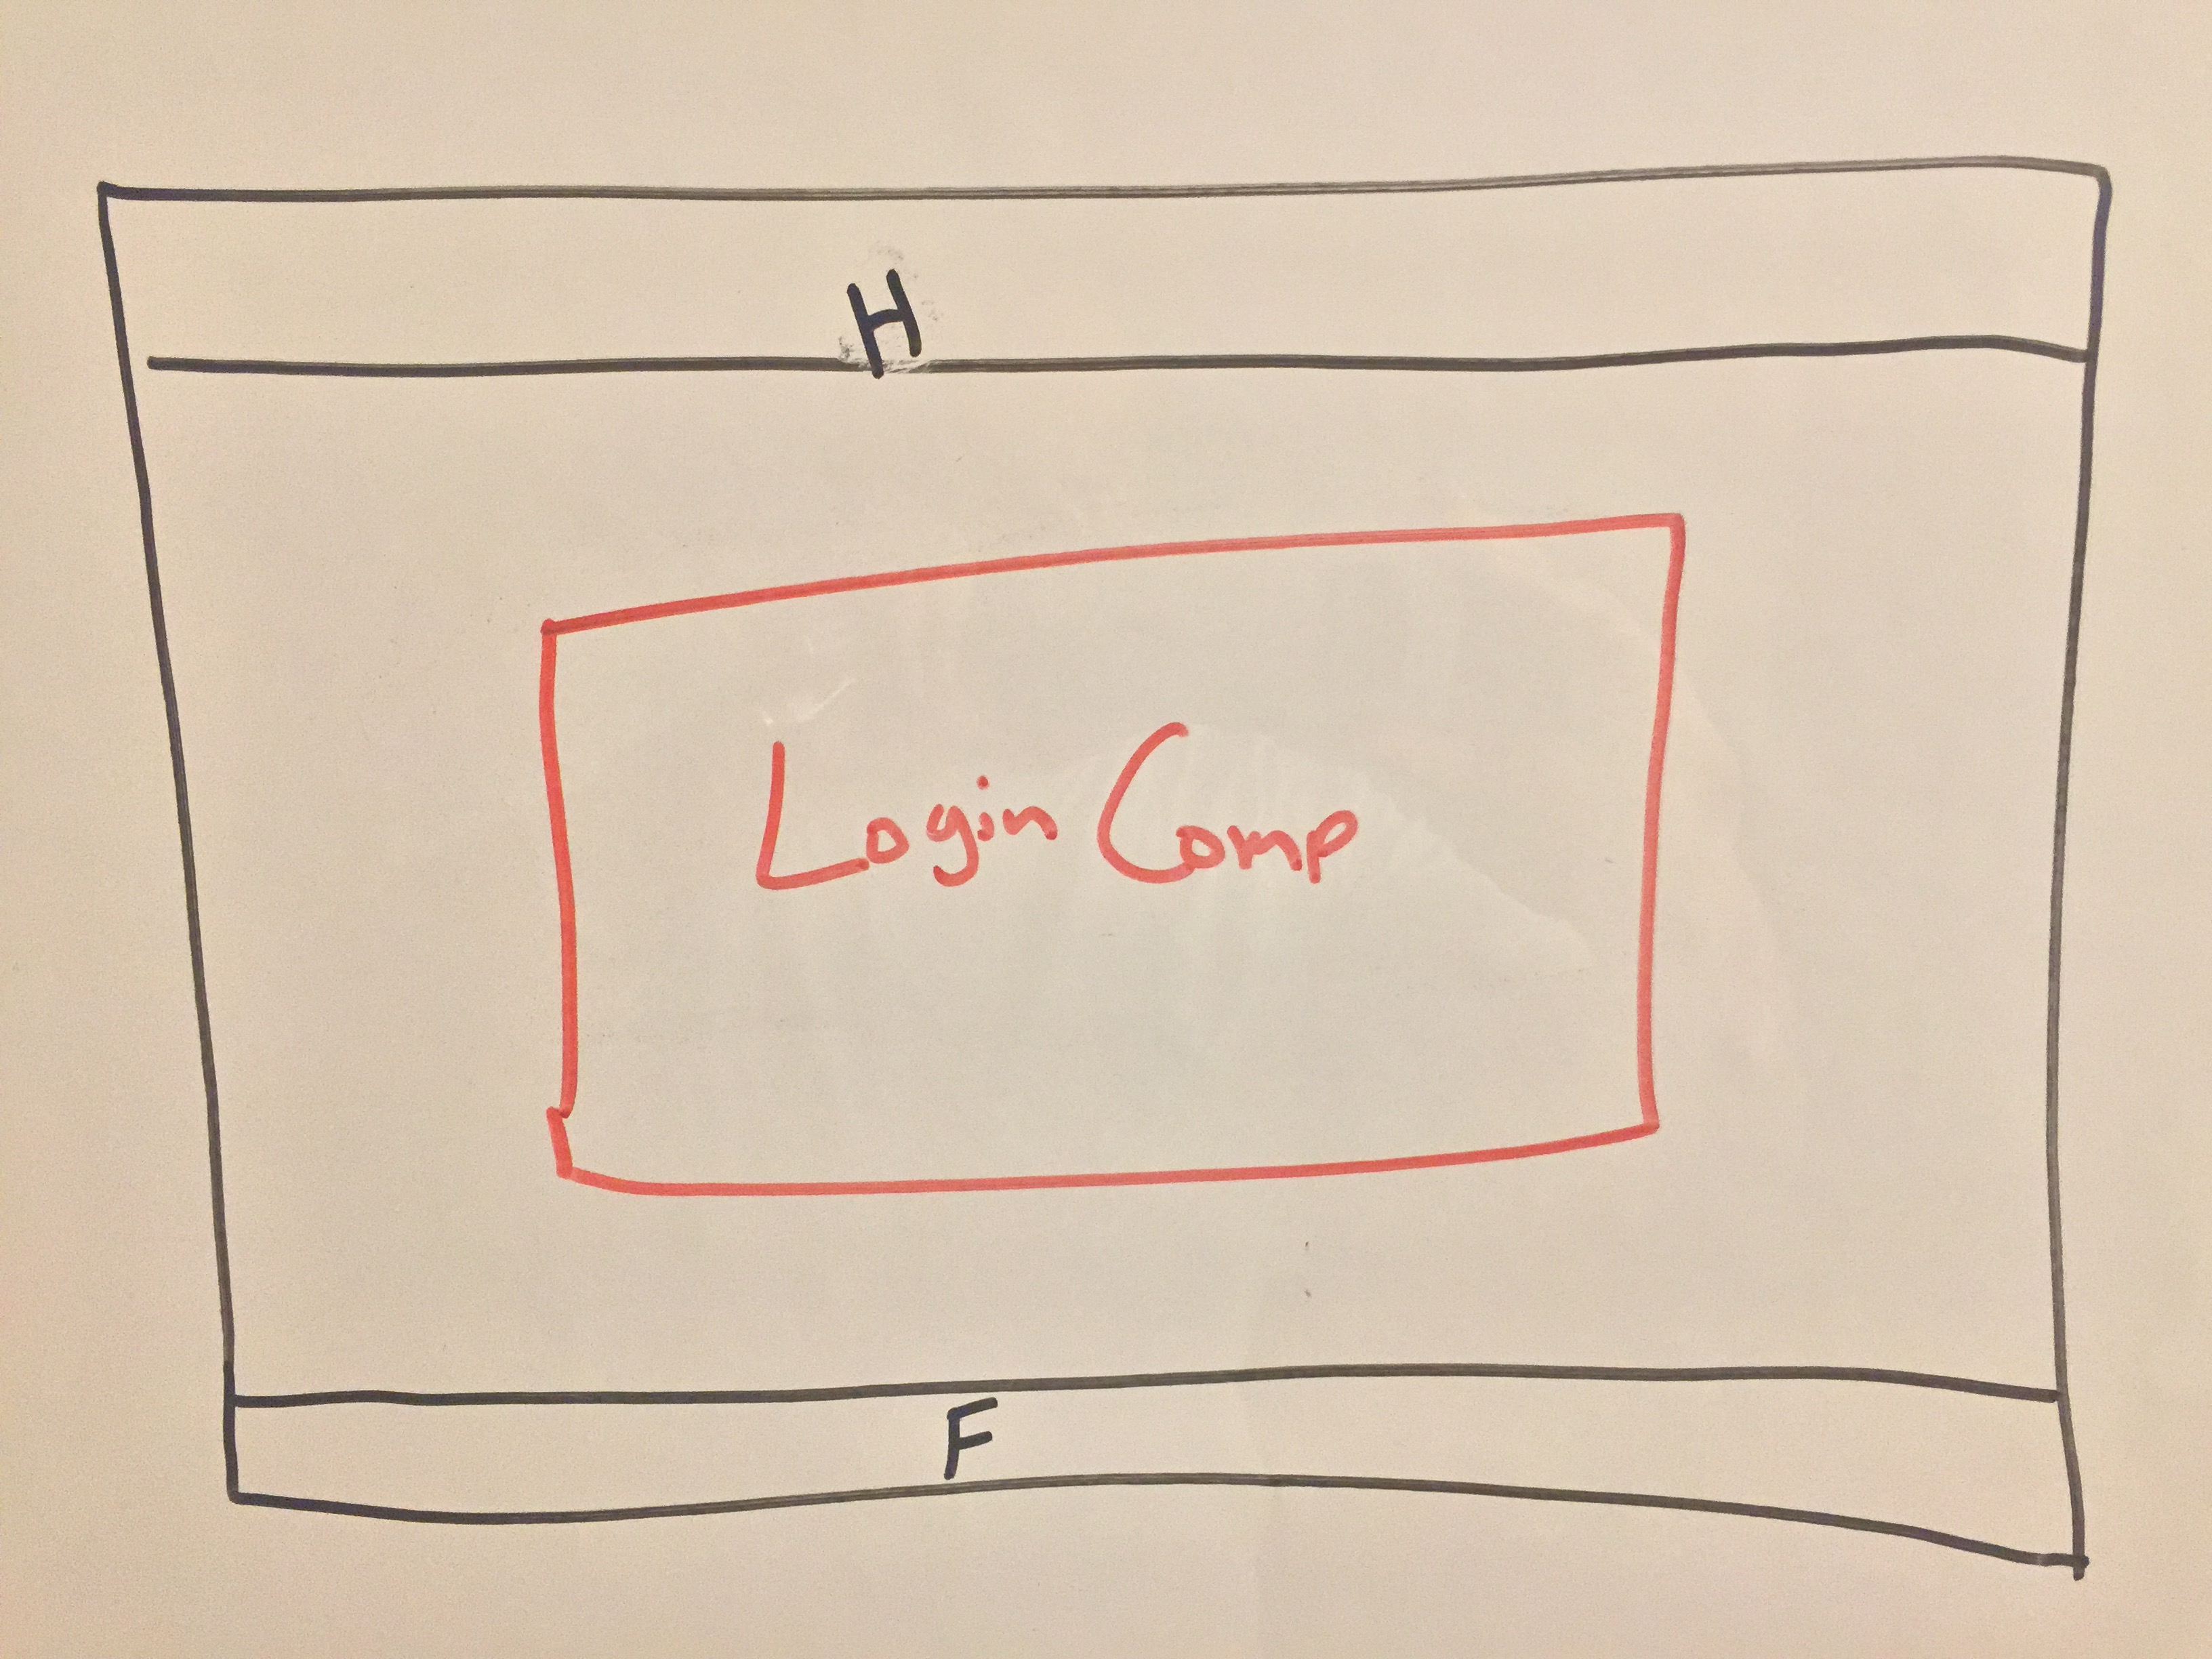 H
Login Comp
F